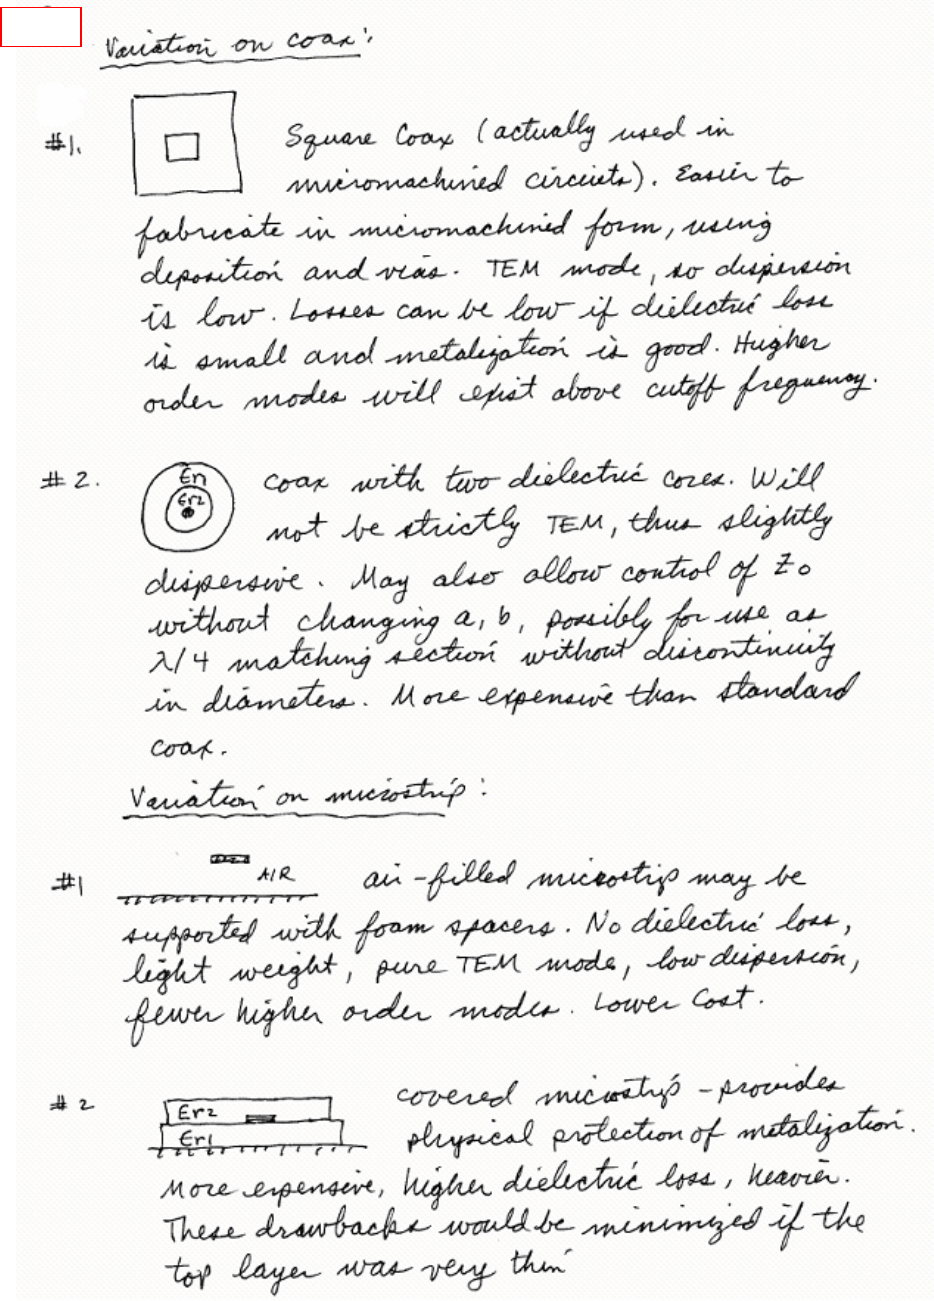 Variation on coax:
#1.
Square Coax (actually used in
micromachined circuits). Easier to
fabricate in micromachined form, using
deposition and vias. TEM mode, so dispersion
is low. Losses can be low if dielectric loss
is small and metalization is good. Higher
order modes will exist above cutoff frequency.
#2.
Er1
Er2
coax with two dielectric cores. Will
not be strictly TEM, thus slightly
dispersive. May also allow control of Zo
without changing a, b, possibly for use as
λ/4 matching section without discontinuity
in diameters. More expensive than standard
coax.
Variation on microstrip:
#1
AIR
air-filled microstrip may be
supported with foam spacers. No dielectric loss,
light weight, pure TEM mode, low dispersion,
fewer higher order modes. Lower Cost.
#2
Er2
Er1
covered microstrip - provides
physical protection of metalization.
More expensive, higher dielectric loss, heavier.
These drawbacks would be minimized if the
top layer was very thin